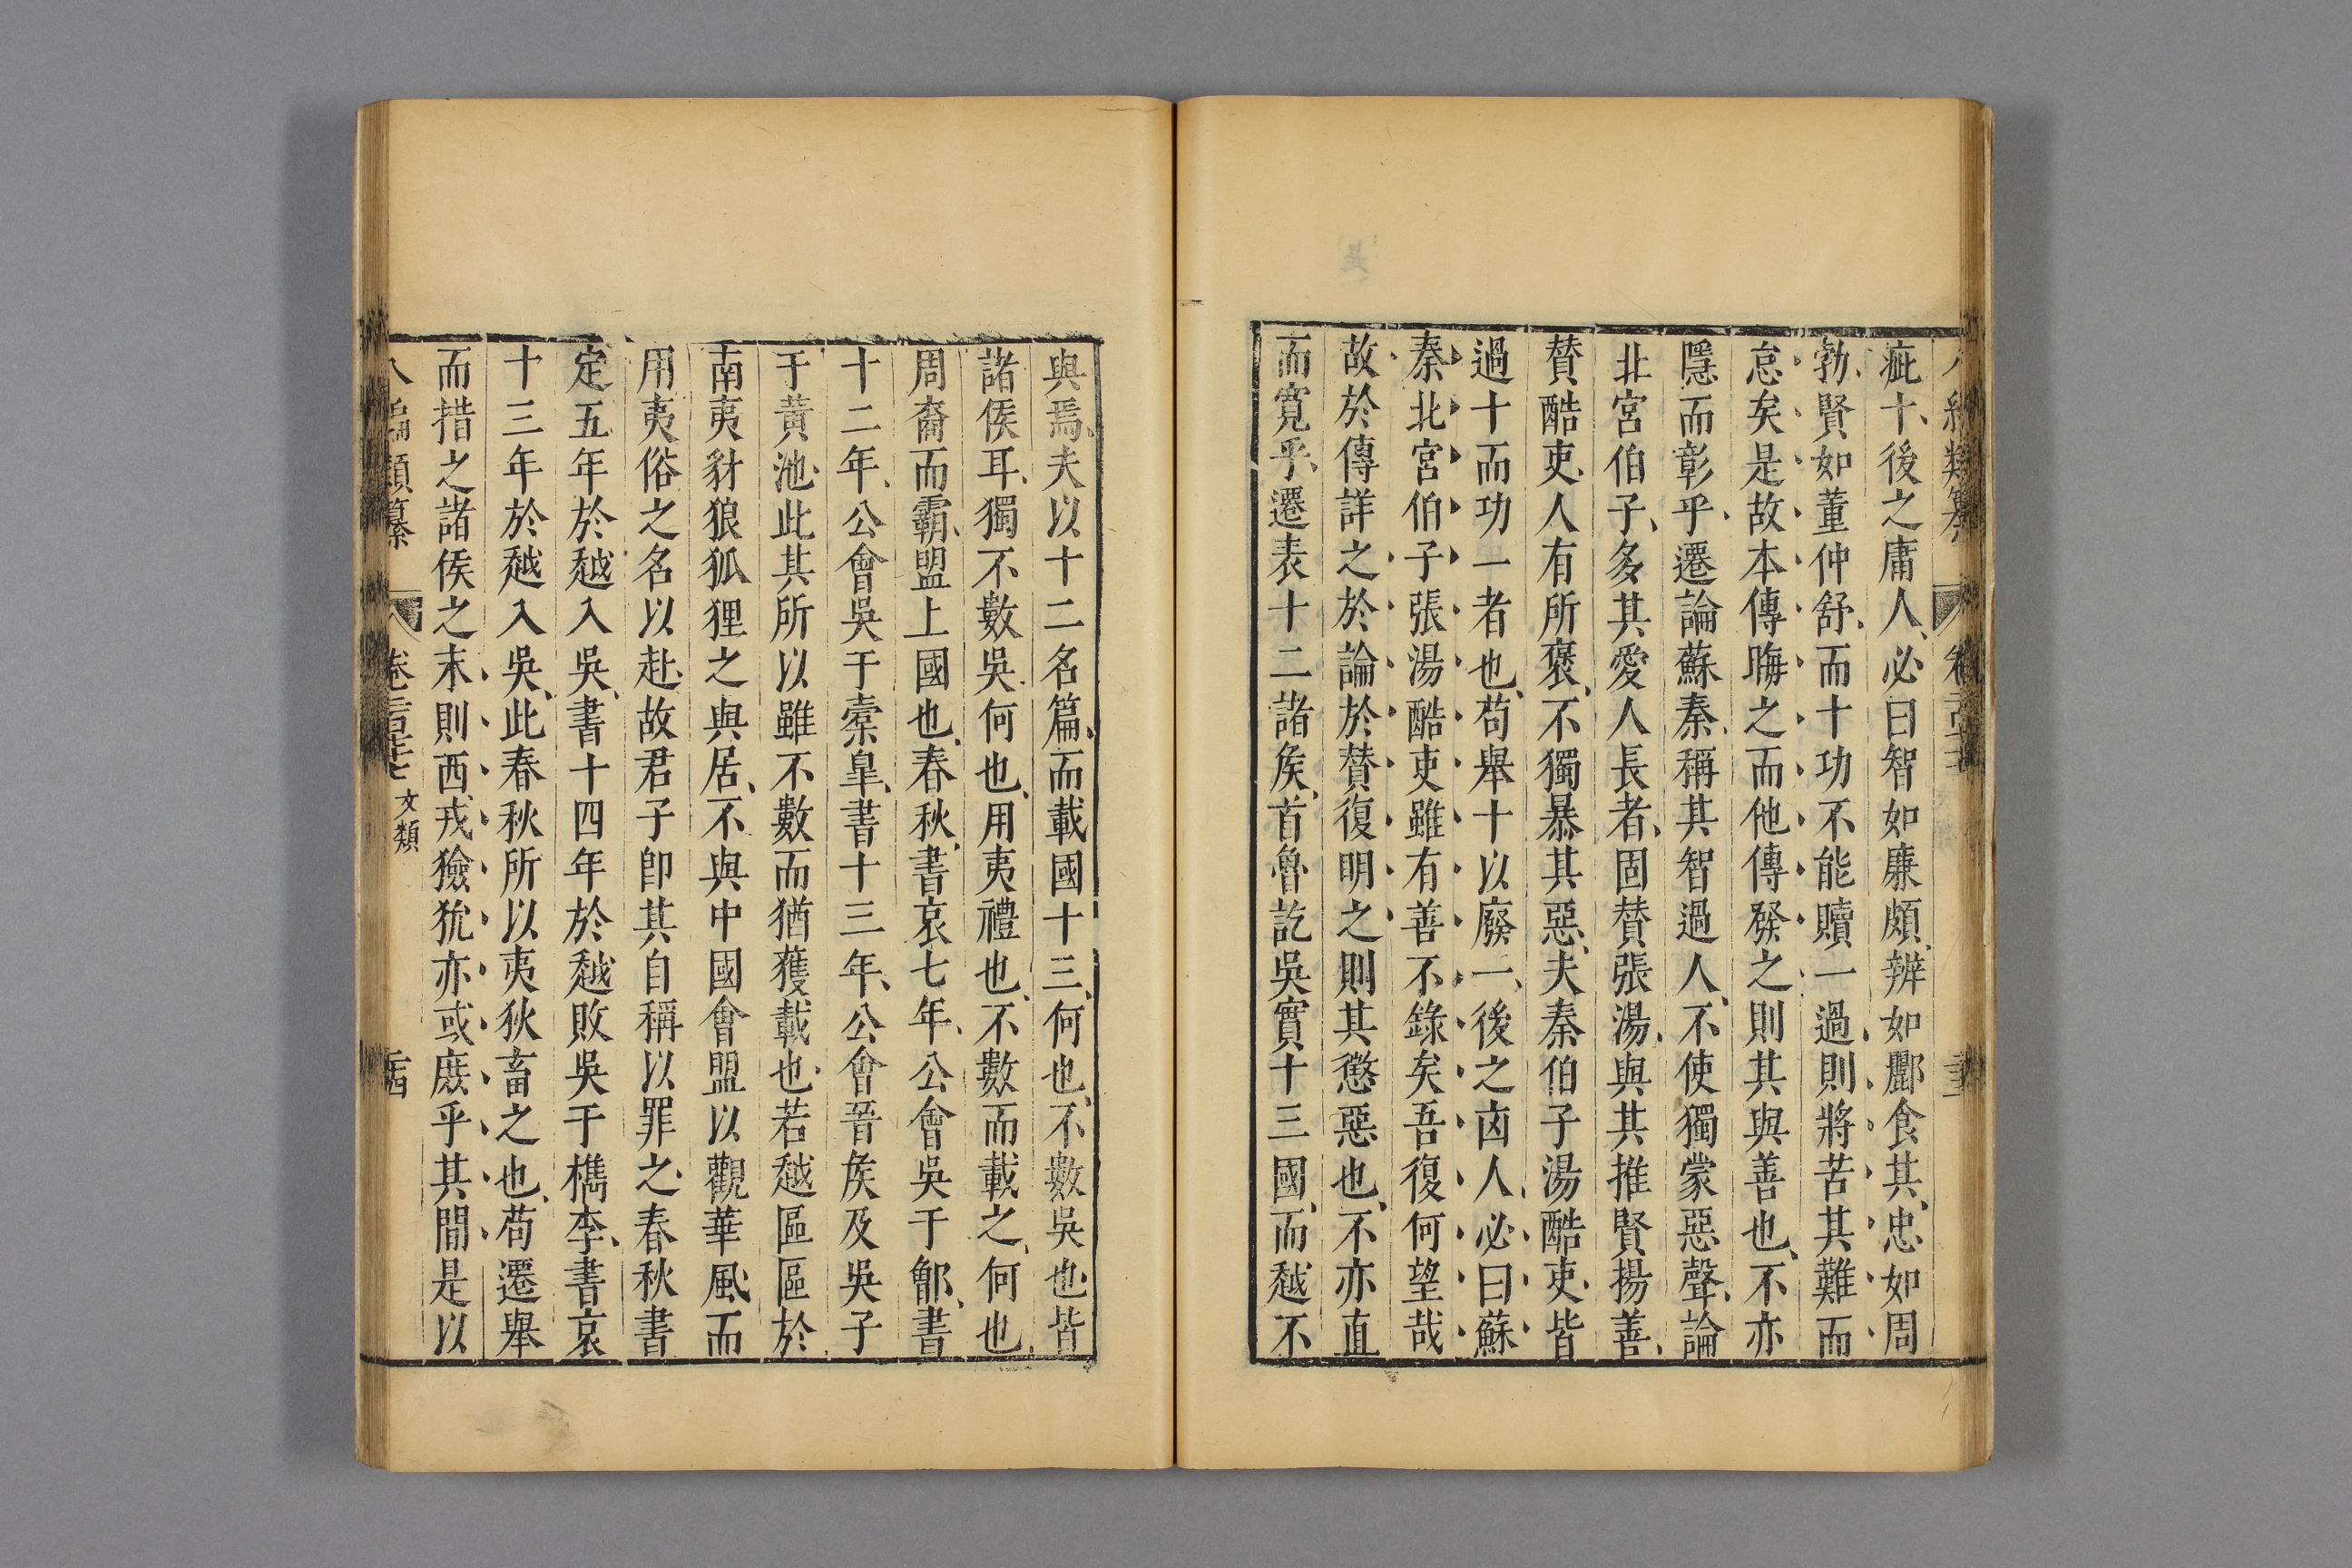 疵十、後之庸人、必曰智如廉頗、辨如酈食其、忠如周
勃、賢如董仲舒、而十功不能贖一過、則將苦其難而
怠矣是故本傳晦之而他傳發之則其與善也、不亦
隱而彰乎、遷論蘇秦、稱其智過人、不使獨蒙惡聲、論
北宮伯子、多其愛人長者、固賛張湯、與其推賢揚善、
賛酷吏、人有所褒、不獨暴其惡、夫秦伯子湯酷吏、皆
過十而功一者也、苟舉十以廢一、後之㐫人、必曰蘇
秦北宮伯子張湯酷吏雖有善不錄矣吾復何望哉
故於傳詳之於論於賛復明之則其懲惡也、不亦直
而寬乎、遷表十二諸矦、首魯訖吳實十三國、而越不
與焉、夫以十二名篇、而載國十三、何也、不數吳也、皆
諸侯耳、獨不數吳何也、用夷禮也、不數而載之、何也、
周裔而霸、盟上國也、春秋、書哀七年、公會吳于鄫、書
十二年、公會吳于槖臯、書十三年、公會晉矦及吳子
于黃池、此其所以雖不數而猶獲載也、若越區區於
南夷豺狼狐狸之與居、不與中國會盟以觀華風、而
用夷俗之名以赴、故君子卽其自稱以罪之、春秋書
定五年於越入吳、書十四年於越敗吳于檇李、書哀
十三年於越入吳、此春秋所以夷狄畜之也、苟遷舉
而措之諸侯之末、則西戎獫狁亦或庶乎其間是以
八編類纂 卷 文類